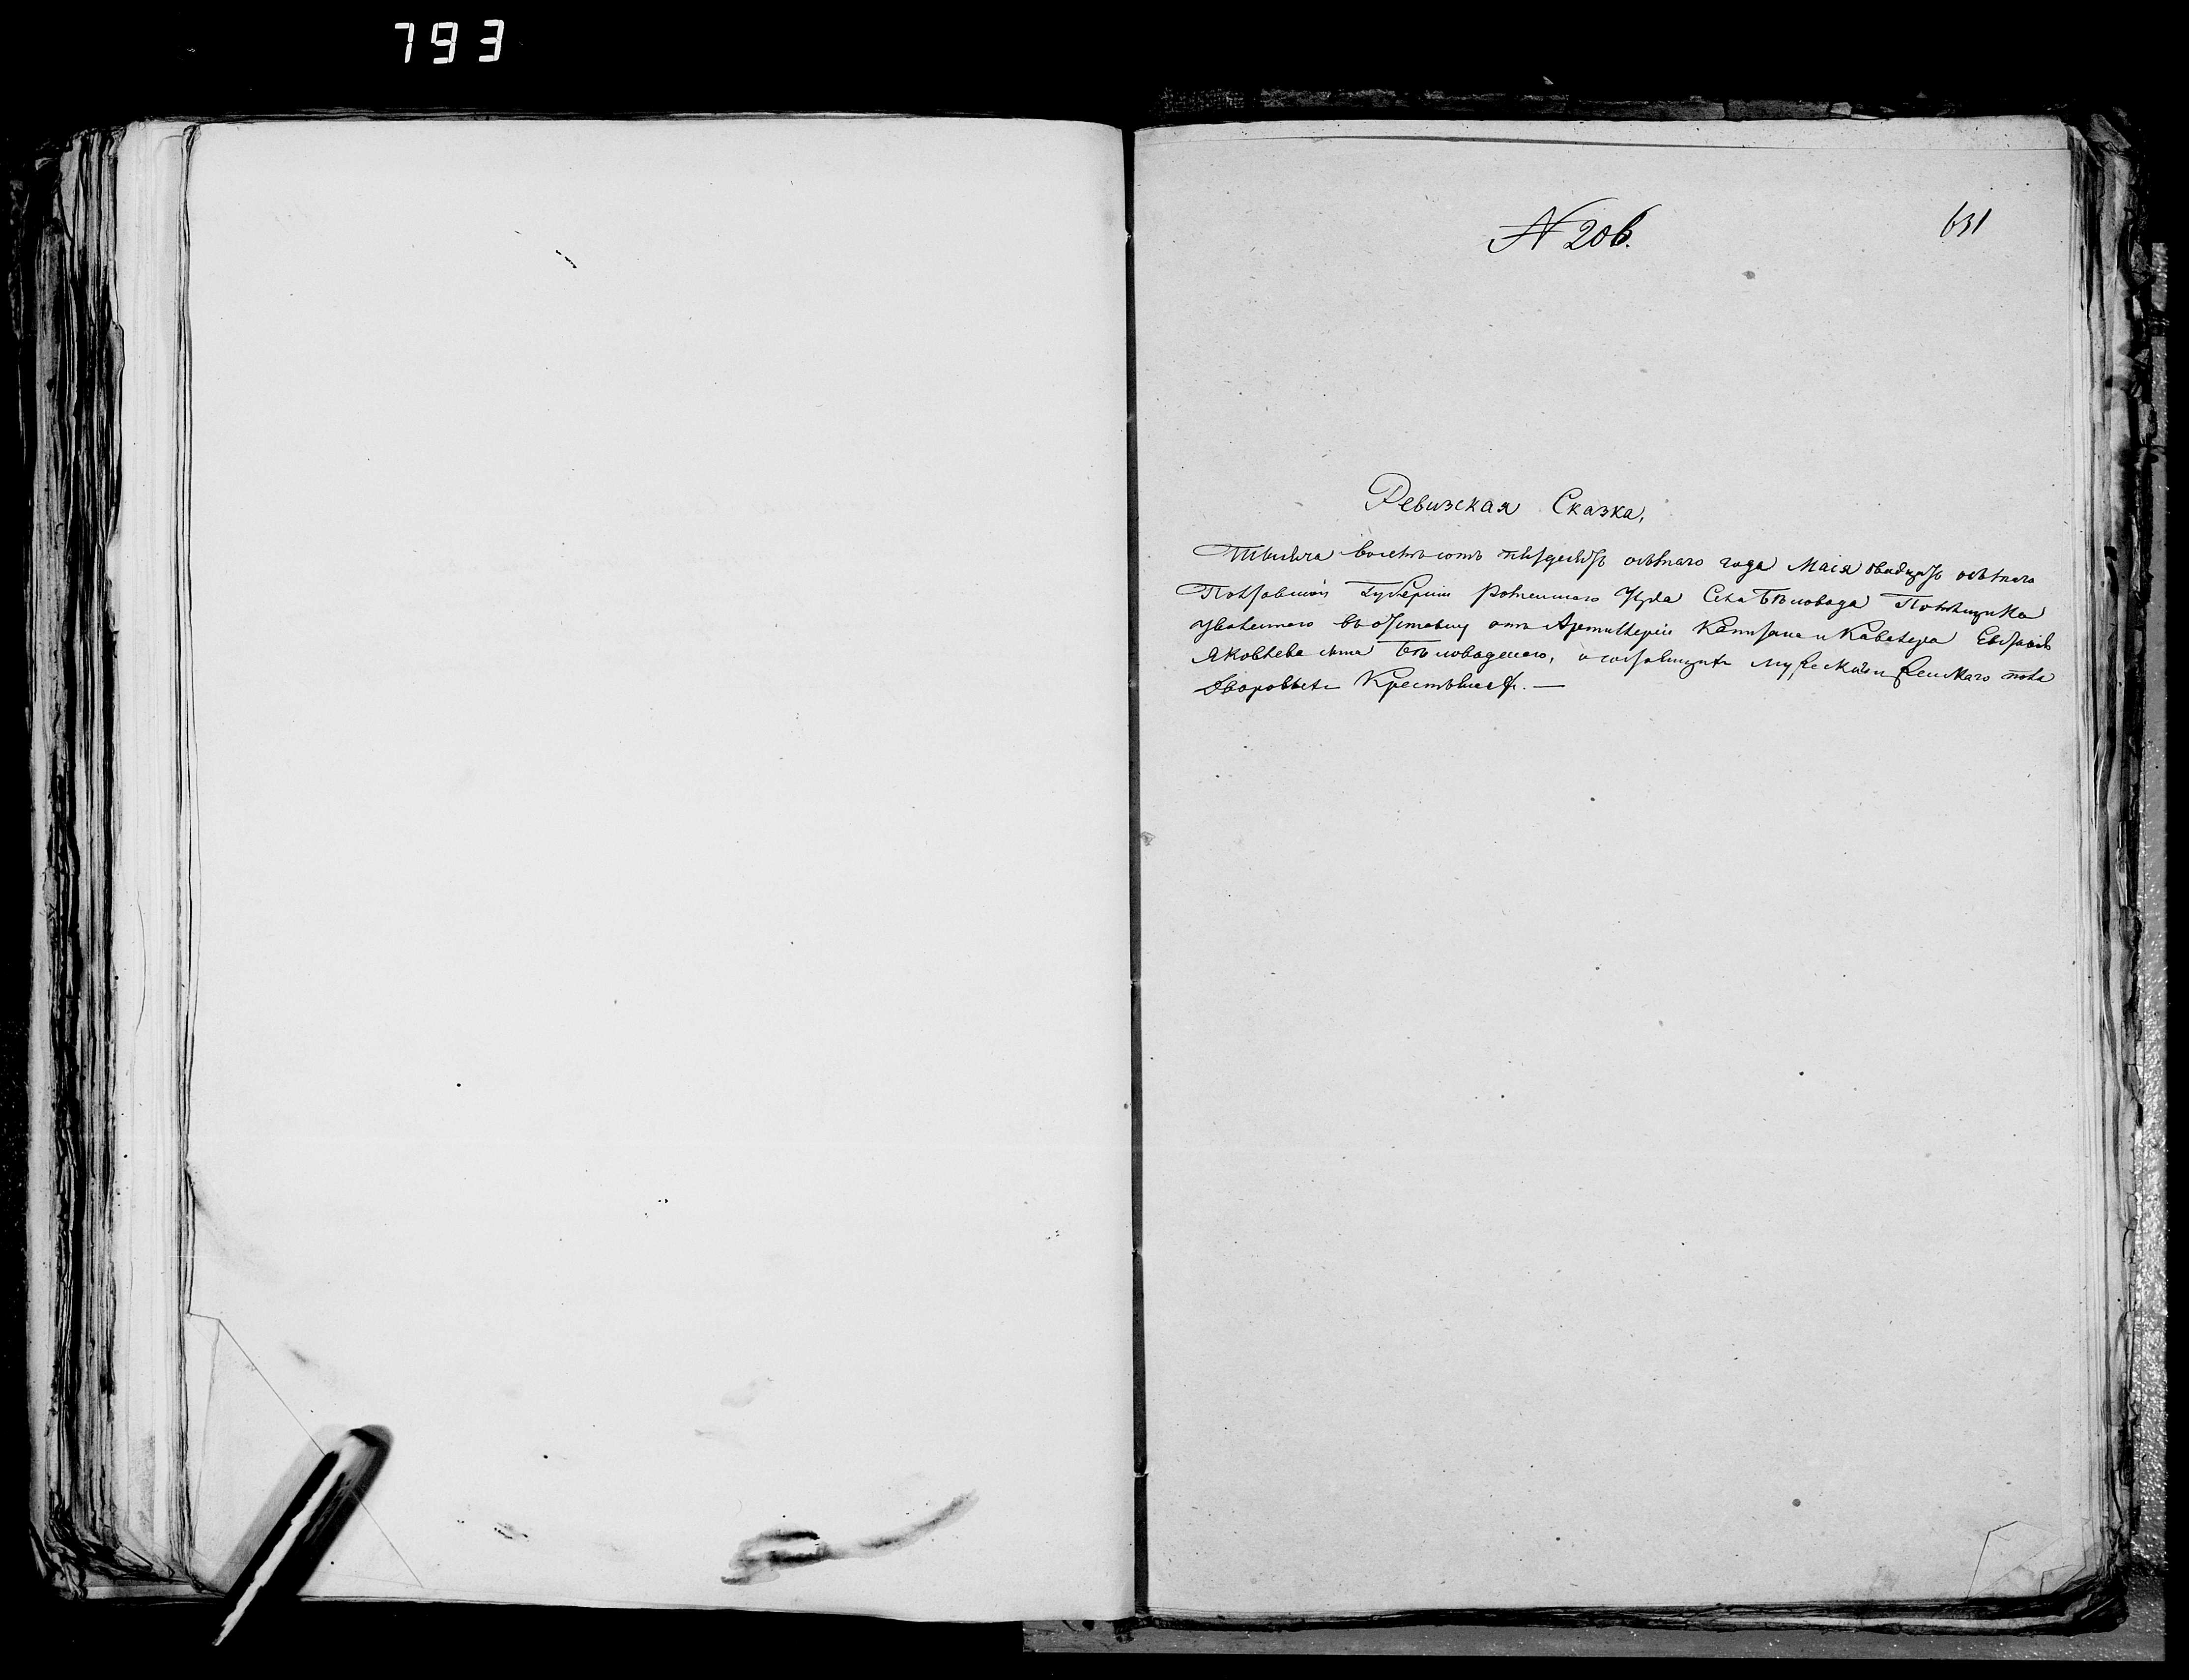 793
N 206.
631
Ревизская Сказка,
Тысяча восемь сотъ пятьдесятъ осьмаго года Маія двадцать осьмаго
Полтавской Губерніи Роменскаго Уѣзда Села Бѣловода Помѣщика
уволеннаго въ отставку отъ Артиллеріи Капитана и Кавалера
Яковлева сына Бѣловодскаго, о состоящихъ мужескаго и женскаго пола
дворовыхъ Крестьянахъ. —